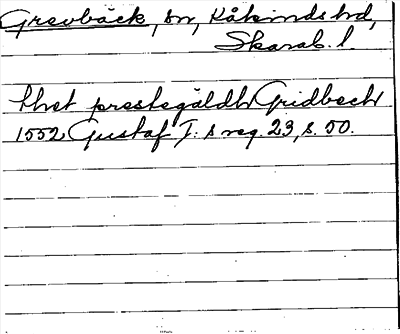 Grevbäck, sn, Kåkinds hd,
Skarab. l.
thet prestegäldh Gridbech
1552 Gustaf I:s reg. 23, s. 50.